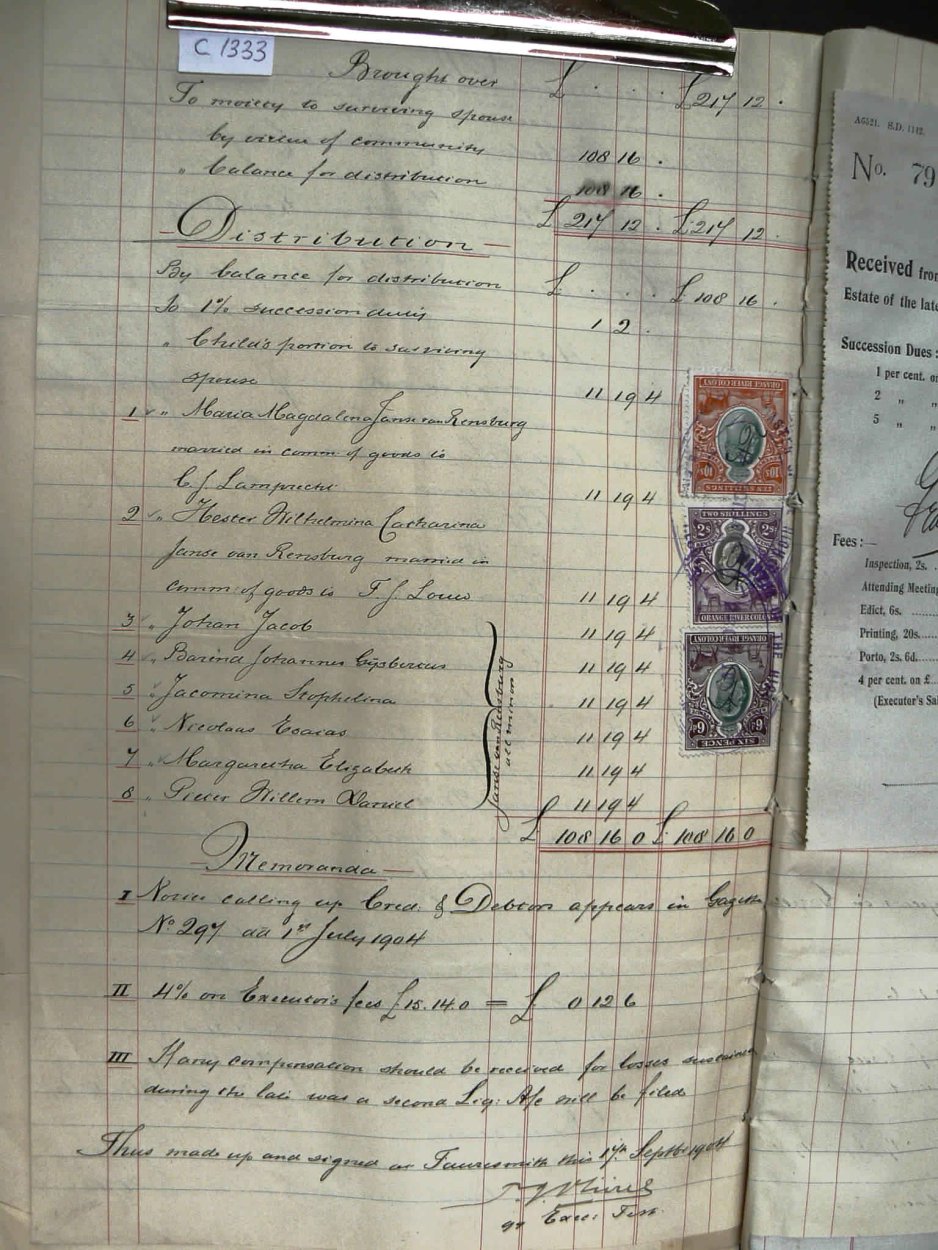 C 1333
Brought over £ . . . £217 12 .
To moiety to surviving spouse
by virtue of community 108 16 .
" balance for distribution 108 16 .
£ 217 12 . £217 12 .
Distribution
By balance for distribution £ . . . £ 108 16 .
To 1% succession duty 1 2 .
" Child's portion to surviving
spouse 11 19 4
1 " Maria Magdalina Janse van Rensburg
married in comm of goods to
C. J. Lamprecht 11 19 4
2 " Hester Wilhelmina Catharina
Janse van Rensburg married in
comm: of goods to F. J. Louw 11 19 4
3 " Johan Jacob 11 19 4
4 " Barend Johannes Gysbertus 11 19 4
5 " Jacomina Stophelina 11 19 4
6 " Nicolaas Esaias 11 19 4
7 " Margaretha Elizabeth 11 19 4
8 " Pieter Willem Daniel 11 19 4
Janse van Rensburg
all minors
£ 108 16 0 £ 108 16 0
Memoranda
I Notice calling up Cred: & Debtors appears in Gazette
No 297 dd 1st July 1904
II 4% on Executors fees £15.14.0 = £ 0 12 6
III If any compensation should be received for losses sustained
during the late war a second Liq: A/c will be filed
Thus made up and signed at Fauresmith this 17th Septbr 1904
qq Exec: Test
ORANGE RIVER COLONY
10s 10s
TEN SHILLINGS
TWO SHILLINGS
2s 2s
ORANGE RIVER COLONY
ORANGE RIVER COLONY
6d 6d
SIX PENCE
A6521. S.D. 1142.
No. 79
Received from
Estate of the late
Succession Dues :
1 per cent. on
2 " "
5 " "
Fees :—
Inspection, 2s. .
Attending Meeting
Edict, 6s.
Printing, 20s.
Porto, 2s. 6d.
4 per cent. on £
(Executor's Sa